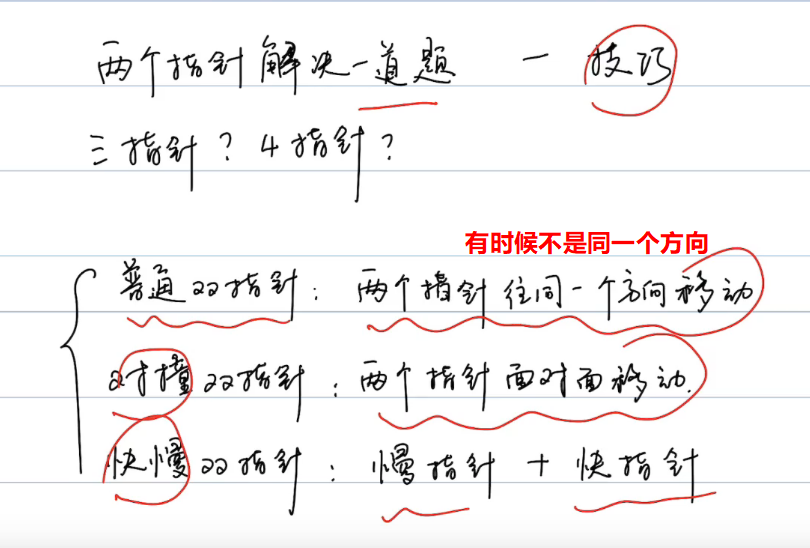 两个指针解决一道题 — 技巧
三指针？4指针？
有时候不是同一个方向
普通双指针：两个指针往同一个方向移动
对撞双指针：两个指针面对面移动.
快慢双指针：慢指针 + 快指针